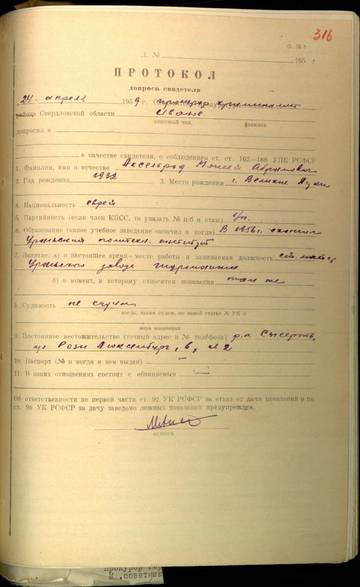 316
Л. №
195 г.
ПРОТОКОЛ
допроса свидетеля
24 апреля 1959 г. прокурор криминалист
Свердловской области Иванов
классный чин, фамилия
допросил в
в качестве свидетеля, с соблюдением ст. ст. 162—168 УПК РСФСР
1. Фамилия, имя и отчество Аксельрод Моисей Абрамович
2. Год рождения 1932 3. Место рождения г. Великие Луки
4. Национальность еврей
5. Партийность (если член КПСС, то указать № п/б и стаж) б/п.
6. Образование (какое учебное заведение окончил и когда) В 1956 г. окончил
Уральский политехн. институт
7. Занятие: а) в настоящее время место работы и занимаемая должность
Уральского завода
б) в момент, к которому относятся показания там же
8. Судимость не судим
когда, каким судом, по какой статье УК и
мера наказания
9. Постоянное местожительство (точный адрес и № телефона) р.п. Сысерть,
ул. Розы Люксембург,
10. Паспорт (№ и когда и кем выдан) —
11. В каких отношениях состоит с обвиняемым —
Об ответственности по первой части ст. 92 УК РСФСР за отказ от дачи показаний и по
ст. 95 УК РСФСР за дачу заведомо ложных показаний предупрежден.
подпись